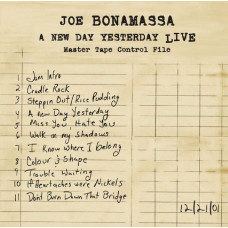 JOE BONAMASSA
A NEW DAY YESTERDAY LIVE
Master Tape Control File
1 Jam Intro
2 Cradle Rock
3 Steppin Out/Rice Pudding
4 A New Day Yesterday
5 Miss You, Hate You
6 Walk in my Shadows
7 I Know Where I Belong
8 Colour & Shape
9 Trouble Waiting
10 If Heartaches were Nickels
11 Dont Burn Down That Bridge
12/21/01